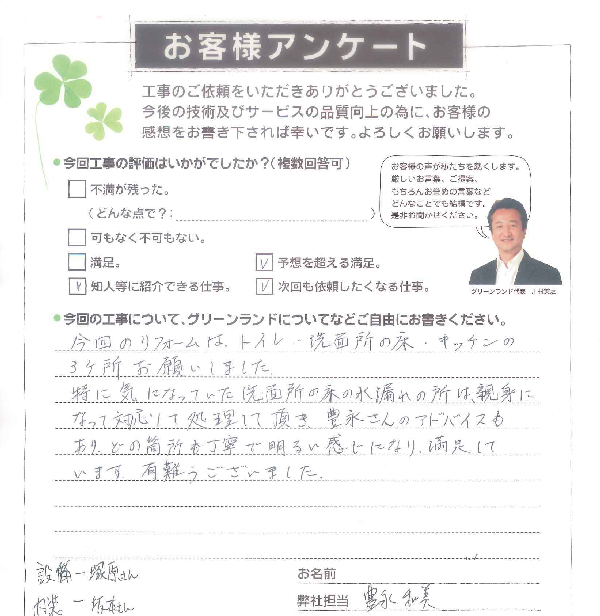 お客様アンケート
工事のご依頼をいただきありがとうございました。
今後の技術及びサービスの品質向上の為に、お客様の
感想をお書き下されば幸いです。よろしくお願いします。
●今回工事の評価はいかがでしたか?(複数回答可)
不満が残った。
(どんな点で?: )
可もなく不可もない。
満足。
予想を超える満足。
知人等に紹介できる仕事。
次回も依頼したくなる仕事。
お客様の声が私たちを磨くします。
厳しいお言葉、ご提案、
もちろんお誉めの言葉など
どんなことでも結構です。
是非お聞かせください。
グリーンランド代表
●今回の工事について、グリーンランドについてなどご自由にお書きください。
今回のリフォームは、トイレ・洗面所の床・キッチンの
3ヶ所お願いしました
特に気になっていた洗面所の床の水漏れの所は、親身に
なって対応して処理して頂き 豊永さんのアドバイスも
あり、どの箇所も丁寧で明るい感じになり、満足して
います 有難うございました。
設備ー塚原さん
お名前
弊社担当 豊永 和美